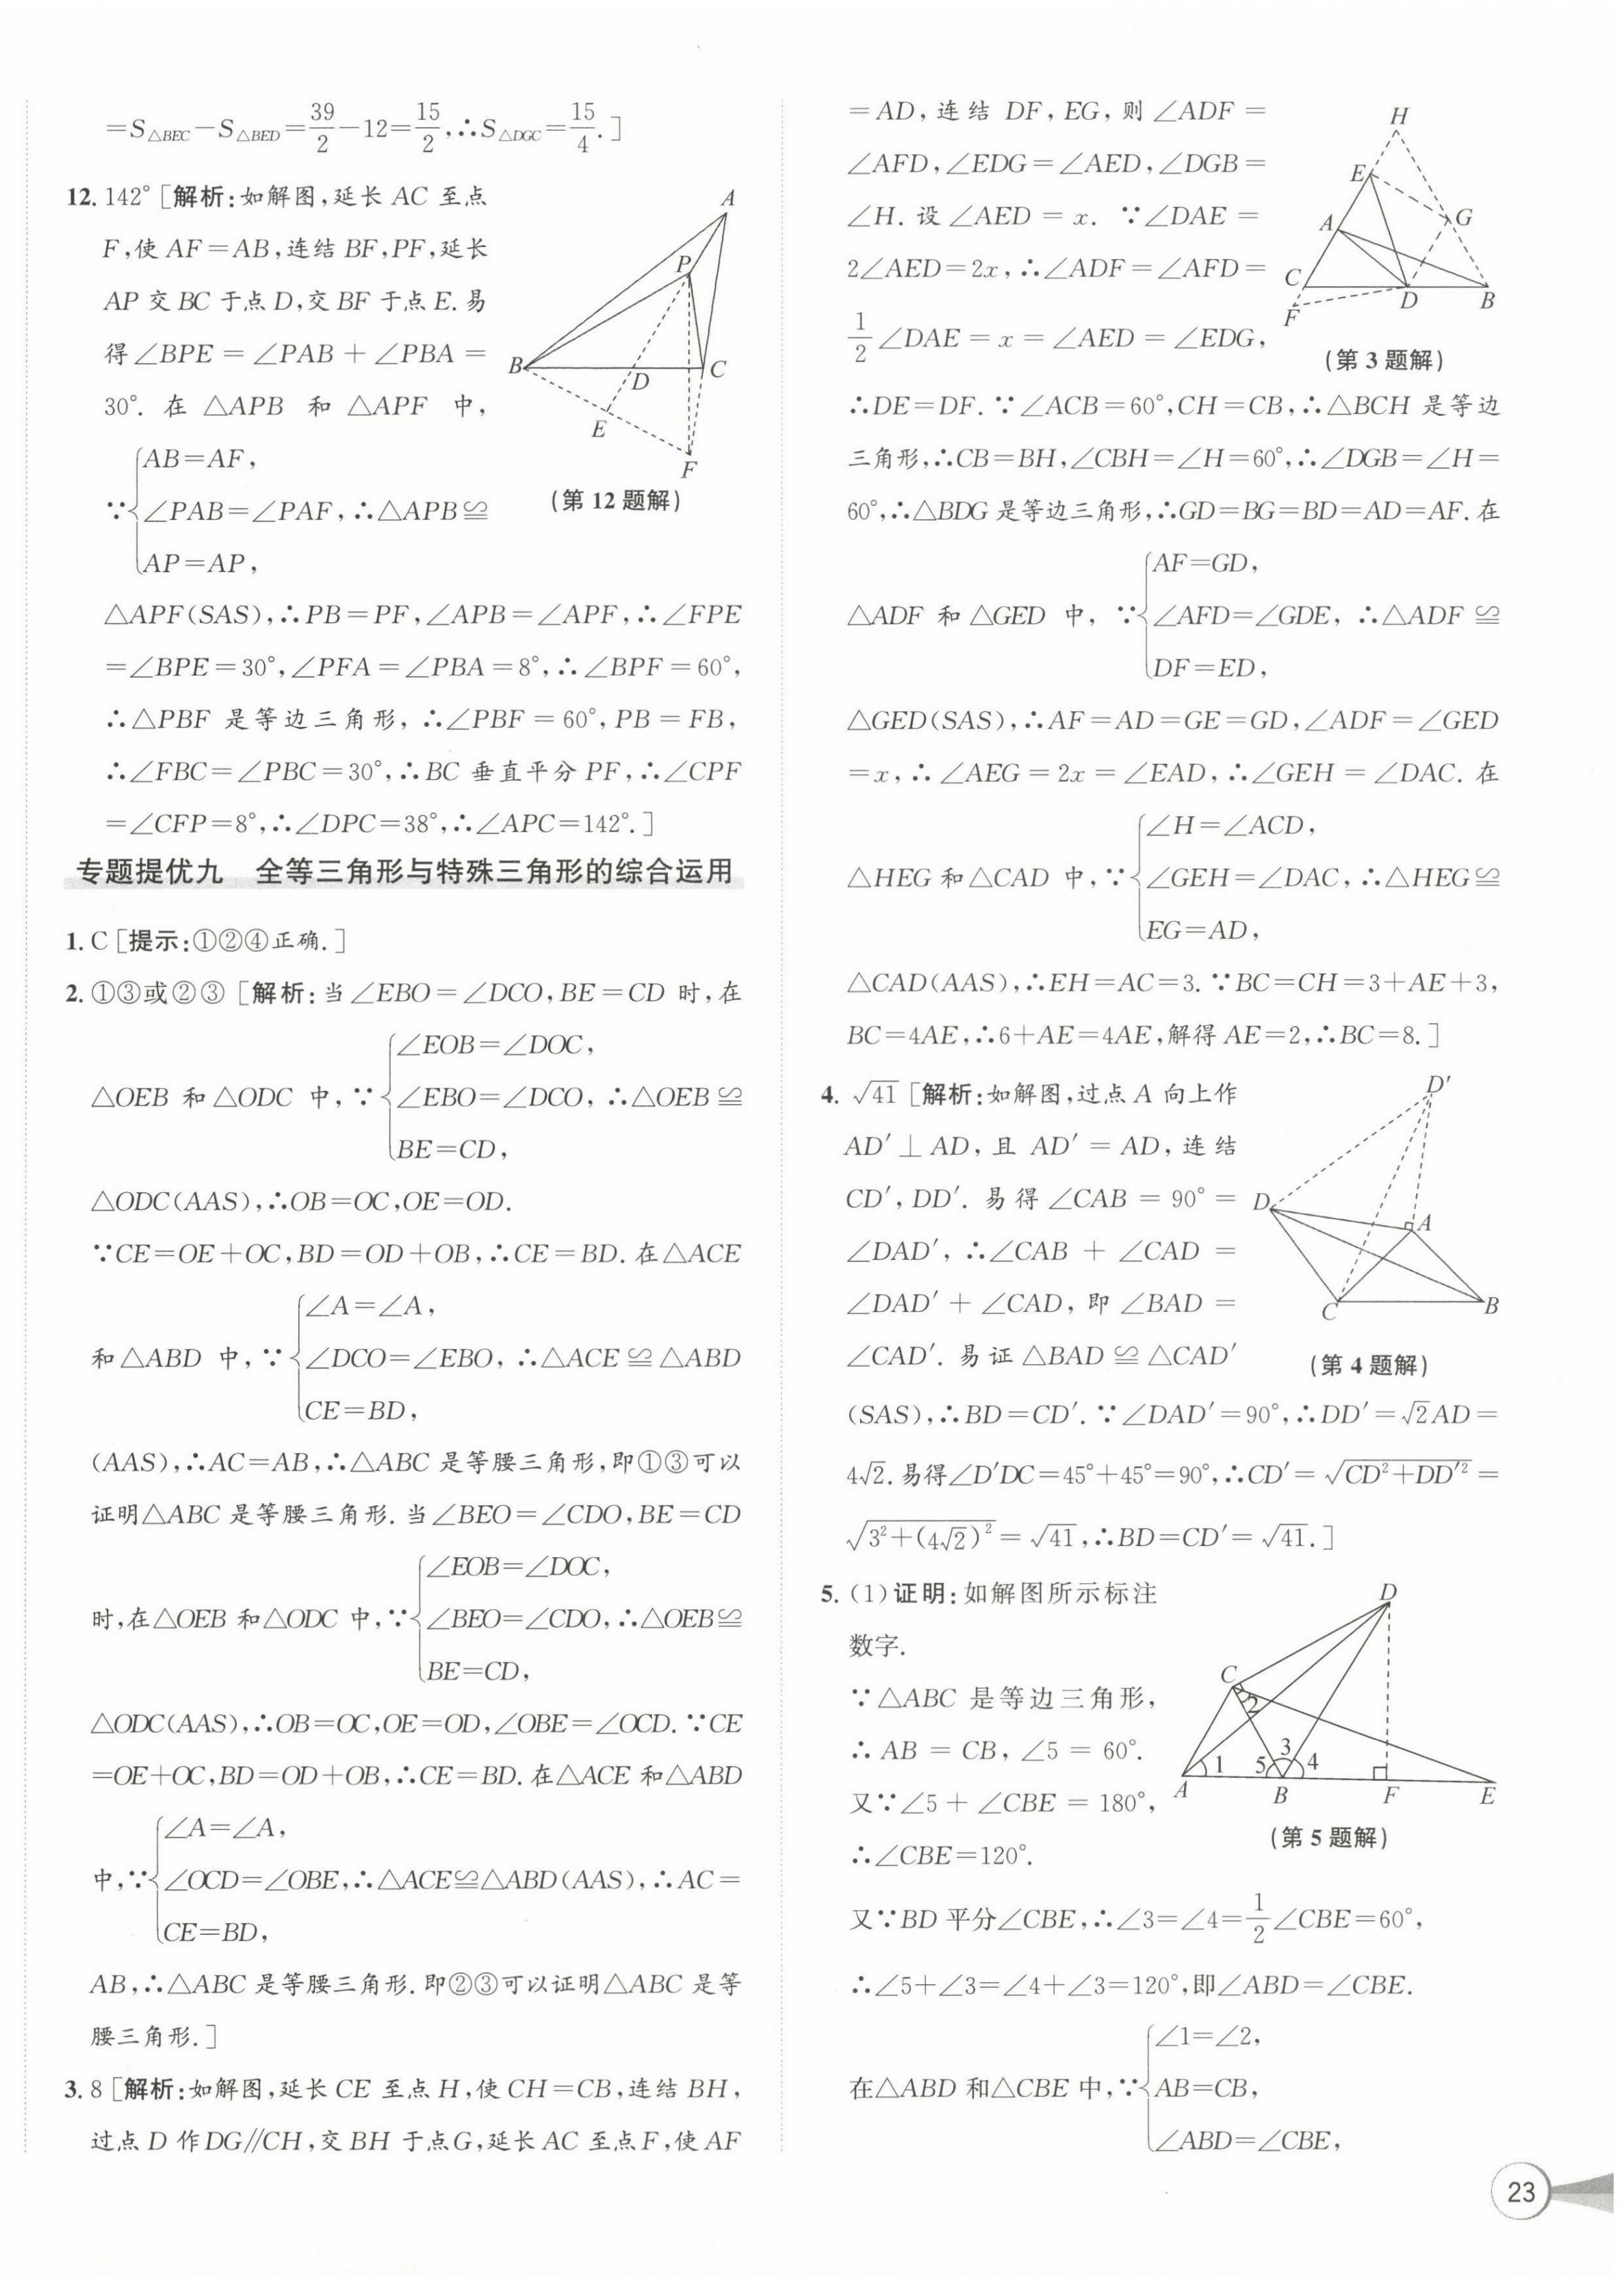 =S△BEC−S△BED=39/2−12=15/2,∴S△DGC=15/4.]
12. 142° [解析:如解图,延长 AC 至点
F,使 AF=AB,连结 BF,PF,延长
AP 交 BC 于点 D,交 BF 于点 E. 易
得∠BPE=∠PAB+∠PBA=
30°. 在 △APB 和 △APF 中,
AB=AF,
∵{∠PAB=∠PAF,∴△APB≌
AP=AP,
△APF(SAS),∴PB=PF,∠APB=∠APF,∴∠FPE
=∠BPE=30°,∠PFA=∠PBA=8°,∴∠BPF=60°,
∴△PBF 是等边三角形,∴∠PBF=60°,PB=FB,
∴∠FBC=∠PBC=30°,∴BC 垂直平分 PF,∴∠CPF
=∠CFP=8°,∴∠DPC=38°,∴∠APC=142°.]
A
P
B
D
C
E
F
(第 12 题解)
专题提优九 全等三角形与特殊三角形的综合运用
1. C [提示:①②④正确.]
2. ①③或②③ [解析:当∠EBO=∠DCO,BE=CD 时,在
∠EOB=∠DOC,
△OEB 和△ODC 中,∵{∠EBO=∠DCO,∴△OEB≌
BE=CD,
△ODC(AAS),∴OB=OC,OE=OD.
∵CE=OE+OC,BD=OD+OB,∴CE=BD. 在△ACE
∠A=∠A,
和△ABD 中,∵{∠DCO=∠EBO,∴△ACE≌△ABD
CE=BD,
(AAS),∴AC=AB,∴△ABC 是等腰三角形,即①③可以
证明△ABC 是等腰三角形. 当∠BEO=∠CDO,BE=CD
∠EOB=∠DOC,
时,在△OEB 和△ODC 中,∵{∠BEO=∠CDO,∴△OEB≌
BE=CD,
△ODC(AAS),∴OB=OC,OE=OD,∠OBE=∠OCD. ∵CE
=OE+OC,BD=OD+OB,∴CE=BD. 在△ACE 和△ABD
∠A=∠A,
中,∵{∠OCD=∠OBE,∴△ACE≌△ABD(AAS),∴AC=
CE=BD,
AB,∴△ABC 是等腰三角形. 即②③可以证明△ABC 是等
腰三角形.]
3. 8 [解析:如解图,延长 CE 至点 H,使 CH=CB,连结 BH,
过点 D 作DG∥CH,交 BH 于点G,延长 AC 至点 F,使 AF
=AD,连结 DF,EG,则∠ADF=
∠AFD,∠EDG=∠AED,∠DGB=
∠H. 设∠AED=x. ∵∠DAE=
2∠AED=2x,∴∠ADF=∠AFD=
1/2∠DAE=x=∠AED=∠EDG,
H
E
G
A
C
D
B
F
(第 3 题解)
∴DE=DF. ∵∠ACB=60°,CH=CB,∴△BCH 是等边
三角形,∴CB=BH,∠CBH=∠H=60°,∴∠DGB=∠H=
60°,∴△BDG 是等边三角形,∴GD=BG=BD=AD=AF. 在
AF=GD,
△ADF 和 △GED 中,∵{∠AFD=∠GDE,∴△ADF≌
DF=ED,
△GED(SAS),∴AF=AD=GE=GD,∠ADF=∠GED
=x,∴∠AEG=2x=∠EAD,∴∠GEH=∠DAC. 在
∠H=∠ACD,
△HEG 和△CAD 中,∵{∠GEH=∠DAC,∴△HEG≌
EG=AD,
△CAD(AAS),∴EH=AC=3. ∵BC=CH=3+AE+3,
BC=4AE,∴6+AE=4AE,解得 AE=2,∴BC=8.]
4. √41 [解析:如解图,过点 A 向上作
AD′⊥AD,且 AD′=AD,连结
CD′,DD′. 易得∠CAB=90°=
∠DAD′,∴∠CAB+∠CAD=
∠DAD′+∠CAD,即∠BAD=
∠CAD′. 易证△BAD≌△CAD′
D′
D
A
C
B
(第 4 题解)
(SAS),∴BD=CD′. ∵∠DAD′=90°,∴DD′=√2AD=
4√2. 易得∠D′DC=45°+45°=90°,∴CD′=√(CD²+DD′²)=
√(3²+(4√2)²)=√41,∴BD=CD′=√41.]
5. (1)证明:如解图所示标注
数字.
∵△ABC 是等边三角形,
∴AB=CB,∠5=60°.
又∵∠5+∠CBE=180°,
∴∠CBE=120°.
D
C
2
3
1
5
4
A
B
F
E
(第 5 题解)
又∵BD 平分∠CBE,∴∠3=∠4=1/2∠CBE=60°,
∴∠5+∠3=∠4+∠3=120°,即∠ABD=∠CBE.
∠1=∠2,
在△ABD 和△CBE 中,∵{AB=CB,
∠ABD=∠CBE,
23